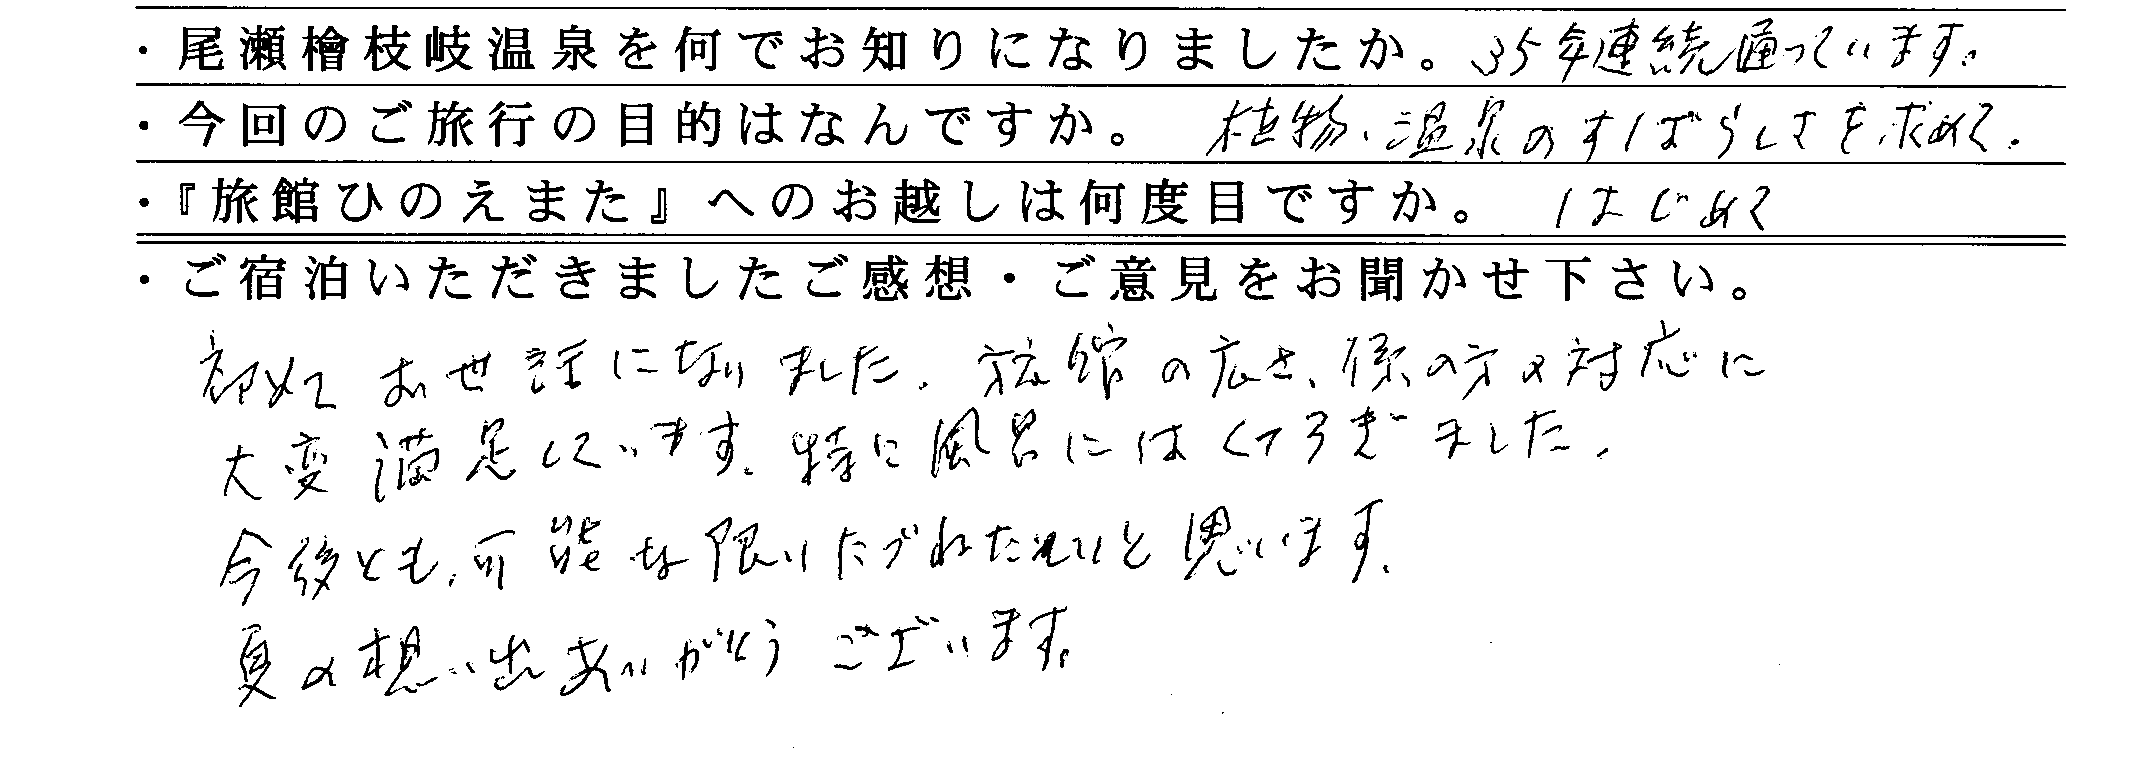 ・尾瀬檜枝岐温泉を何でお知りになりましたか。35年連続通っています。
・今回のご旅行の目的はなんですか。植物、温泉のすばらしさを求めて。
・『旅館ひのえまた』へのお越しは何度目ですか。はじめて
・ご宿泊いただきましたご感想・ご意見をお聞かせ下さい。
初めてお世話になりました。旅館の広さ、係の方の対応に
大変満足しています。特に風呂にはくつろぎました。
今後とも、可能な限りたづねたいと思います。
夏の想い出ありがとうございます。